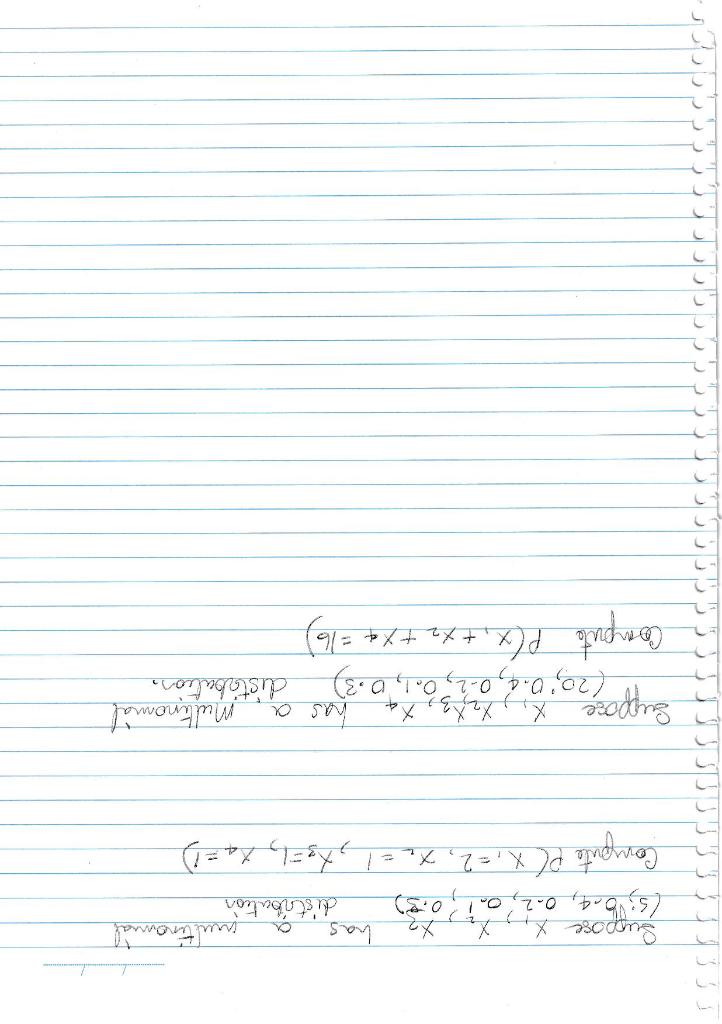 Suppose X₁, X₂, X₃ has a multinomial
(5; 0.4, 0.2, 0.1, 0.3) distribution
Compute P(X₁=2, X₂=1, X₃=1, X₄=1)
Suppose X₁, X₂, X₃, X₄ has a Multinomial
(20; 0.4, 0.2, 0.1, 0.3) distribution.
Compute P(X₁ + X₂ + X₄ = 16)